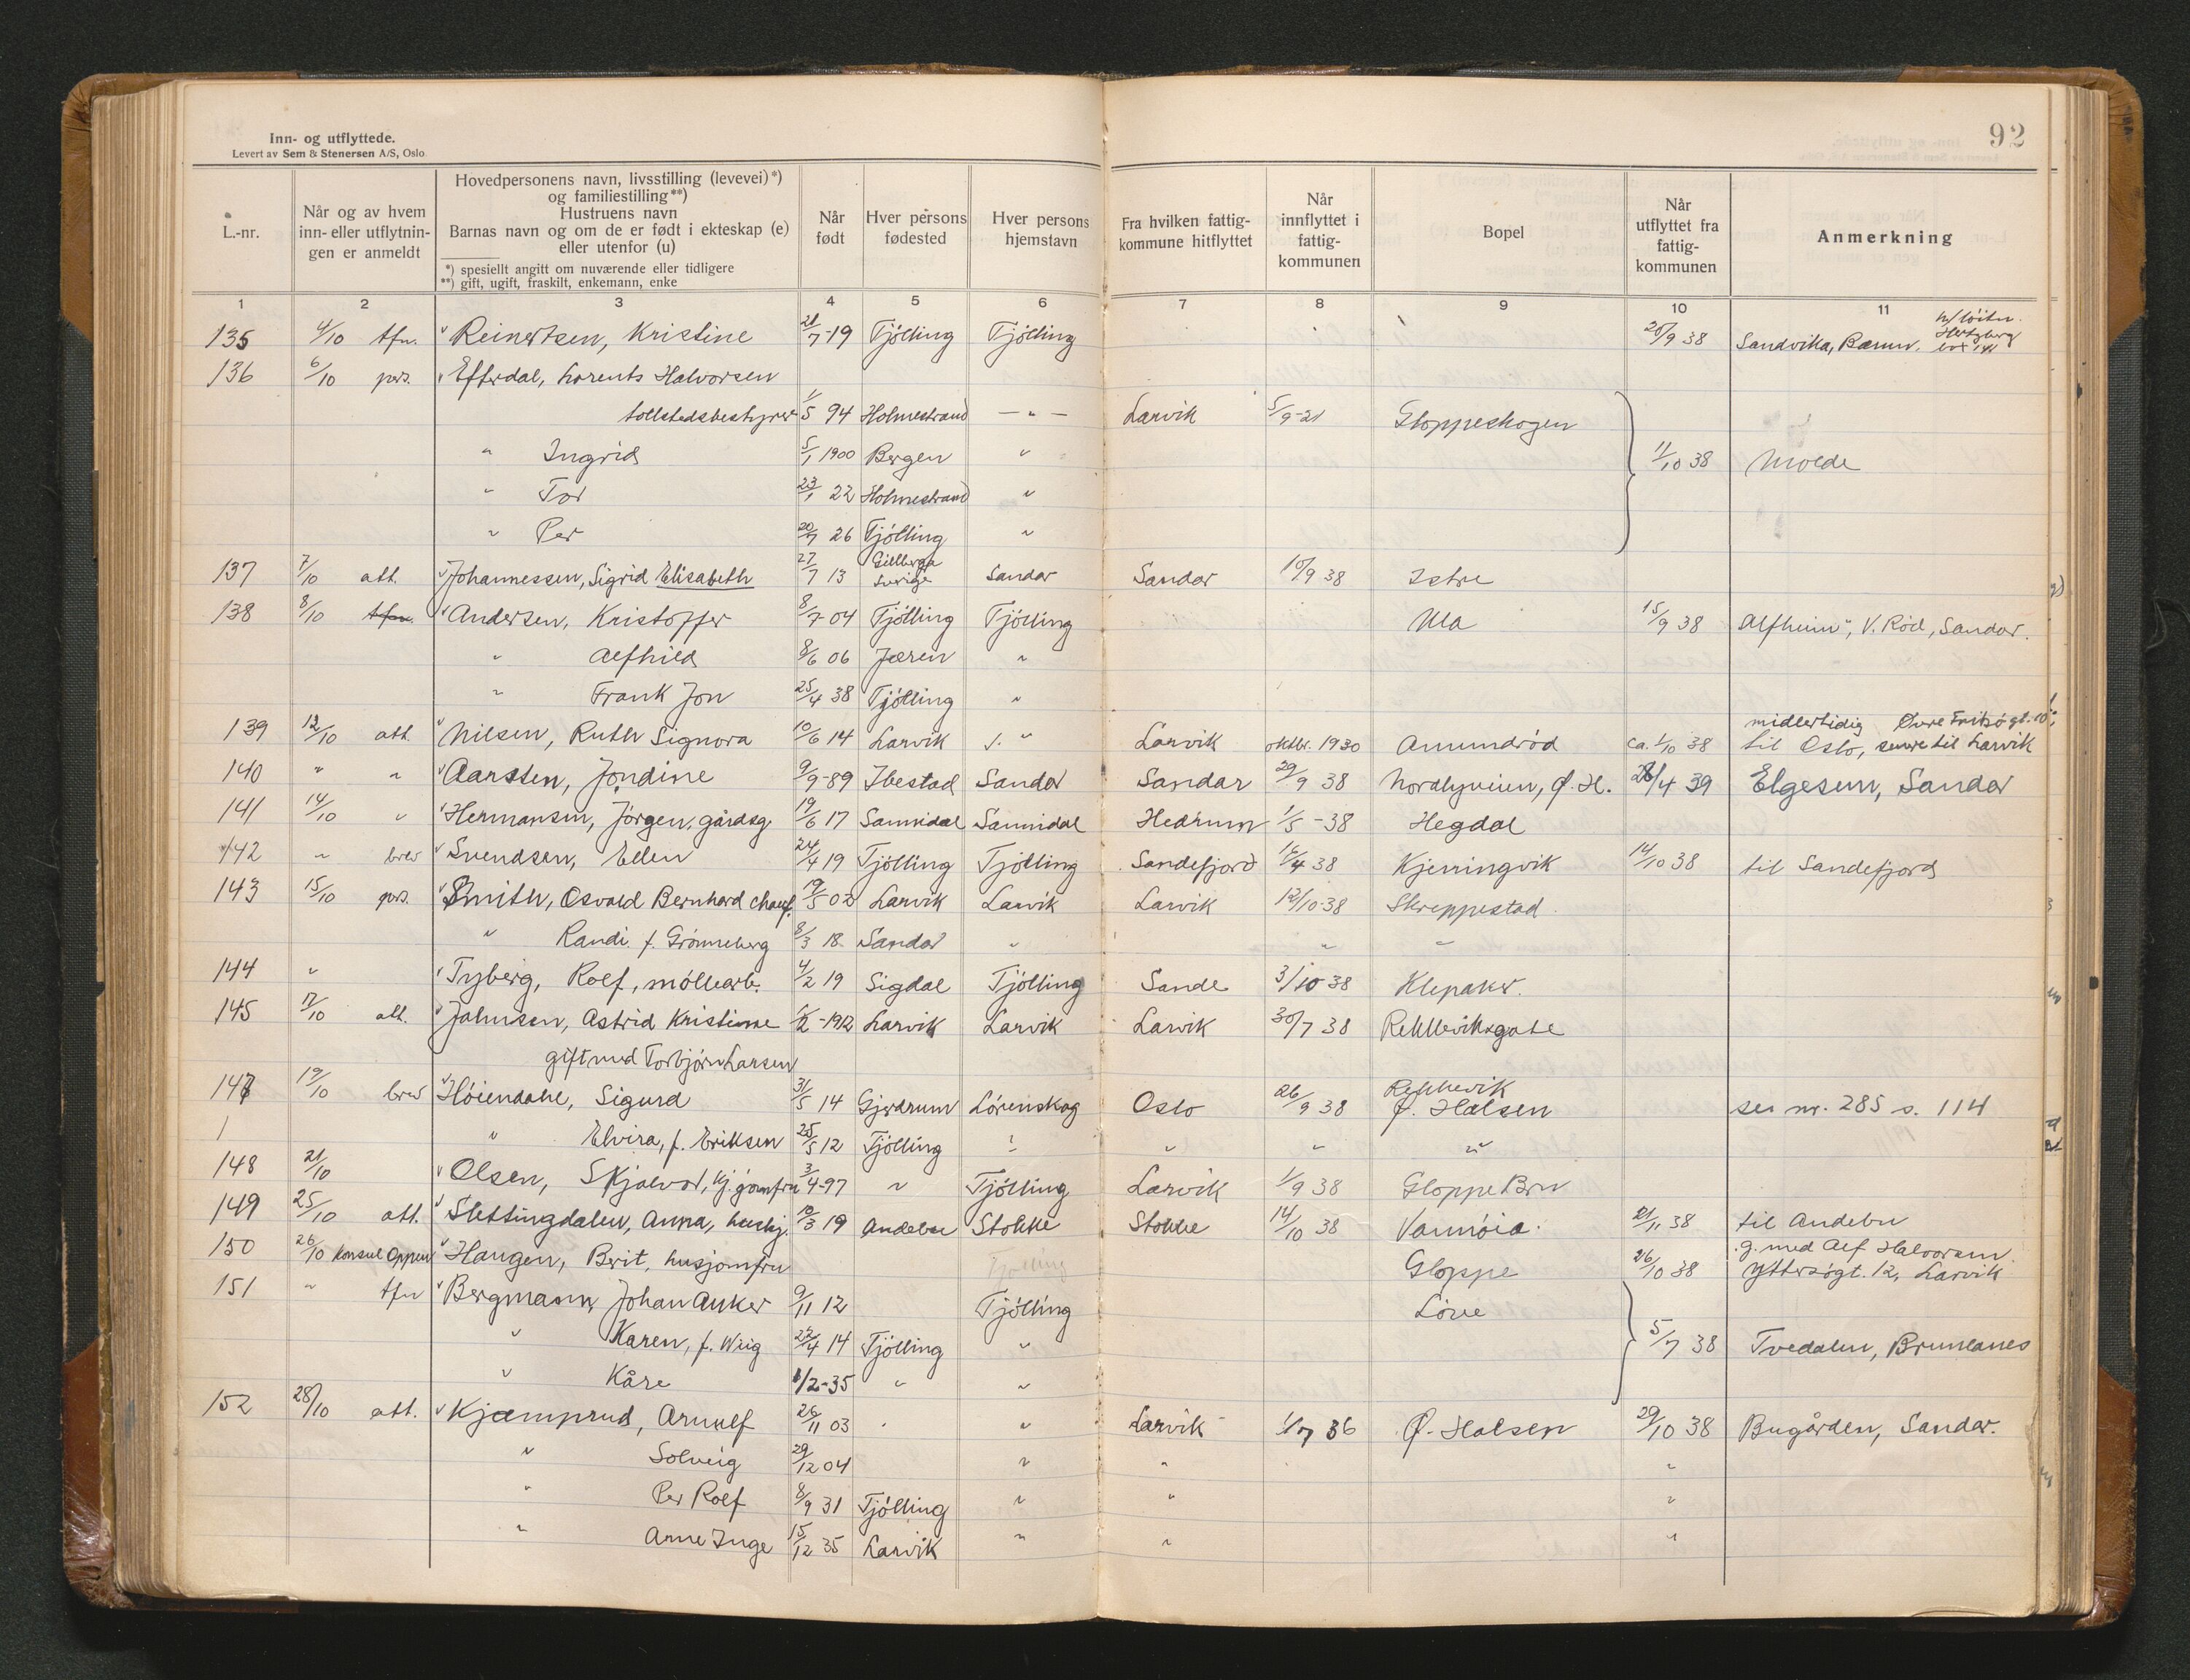 92
Inn- og utflyttede.
Levert av Sem & Stenersen A/S, Oslo.
L.-nr.
Når og av hvem inn- eller utflytnin-gen er anmeldt
Hovedpersonens navn, livsstilling (levevei)*)
og familiestilling**)
Hustruens navn
Barnas navn og om de er født i ekteskap (e)
eller utenfor (u)
*) spesiellt angitt om nuværende eller tidligere
**) gift, ugift, fraskilt, enkemann, enke
Når født
Hver persons fødested
Hver persons hjemstavn
Fra hvilken fattig-kommune hitflyttet
Når innflyttet i fattig-kommunen
Bopel
Når utflyttet fra fattig-kommunen
Anmerkning
1 2 3 4 5 6 7 8 9 10 11
135 4/10 tfn. Reinertsen, Kristine 21/7-19 Tjölling Tjölling 20/9 38 Sandvika, Bærum. Hertzberg
136 6/10 pers. Eftedal, Lorents Halvorsen
tollstedsbestyrer 1/5 94 Holmestrand — " — Larvik 5/9-21 Gloppeskogen
" Ingrid 5/1 1900 Bergen " 11/10 38 Molde
" Tor 23/1 22 Holmestrand "
" Per 20/7 26 Tjölling "
137 7/10 att. Johannessen, Sigrid Elisabeth 27/7 13 Gillberga Sverige Sandar Sandar 10/9 38 Istre
138 8/10 tfn. Andersen, Kristoffer 8/7-04 Tjölling Tjölling Ula 15/9 38 Alfheim", V. Röd, Sandar.
" Alfhild 8/6 06 Jæren "
" Frank Jon 25/4 38 Tjölling "
139 12/10 att. Nilsen, Ruth Signora 10/6 14 Larvik " Larvik oktbr. 1930 Amundröd ca. 1/10 38 midlertidig Øvre Fritsögt. 10
til Oslo, senere til Larvik
140 " " Aarsten, Jondine 9/9-89 Ibestad Sandar Sandar 29/9 38 Nordbyveien, Ø. H. 26/4 39 Elgesem, Sandar
141 14/10 " Hermansen, Jörgen, gårdsg. 19/6 17 Sannidal Sannidal Hedrum 1/5-38 Hegdal
142 " brev Svendsen, Ellen 24/4 19 Tjölling Tjölling Sandefjord /4 38 Kjerringvik 14/10 38 til Sandefjord
143 15/10 pers. Smith, Osvald Bernhard chauf. 19/5 02 Larvik Larvik Larvik 12/10-38 Skreppestad
" Randi f. Grönneberg 8/3 18 Sandar " " "
144 " Tyberg, Rolf, möllearb. 4/2 19 Sigdal Tjölling Sande 3/10-38 Klepaker.
145 17/10 att. Johnsen, Astrid Kristinne /2-1912 Larvik Larvik Larvik 30/7 38 Rekkeviksgate
gift med Torbjörn Larsen
147 19/10 brev Höiendahl, Sigurd 31/5 14 Gjerdrum Lörenskog Oslo 26/9 38 Rekkevik
Ø. Halsen se nr. 285 s. 114
" Elvira, f. Eriksen 25/5 12 Tjölling " " " "
148 21/10 Olsen, Skjalvor, kj. jomfru 3/4-97 " Tjölling Larvik 1/9 38 Gloppe Bru
149 25/10 att. Slettingdalen, Anna, hushj. 10/3 19 Andebu Stokke Stokke 14/10 38 Vannöia. 21/11 38 til Andebu
150 26/10 Konsul Oppen Haugen, Brit, husjomfru Gloppe 26/10 38 g. med Alf Halvorsen
Yttersögt. 12, Larvik
151 " tfn Bergmann, Johan Anker 9/11 12 Tjölling Löve
" Karen, f. Wiig 22/4 14 Tjölling " 5/7 38 Tvedalen, Brunlanes
" Kåre 1/2-35 " "
152 28/10 att. Kjæmprud, Arnulf 26/11 03 " " Larvik 1/7 36 Ø. Halsen 29/10 38 Bugården, Sandar.
" Solveig 29/12 04 " " "
" Per Rolf 8/9 31 Tjölling " " "
" Arne Inge 15/12 35 Larvik " " "